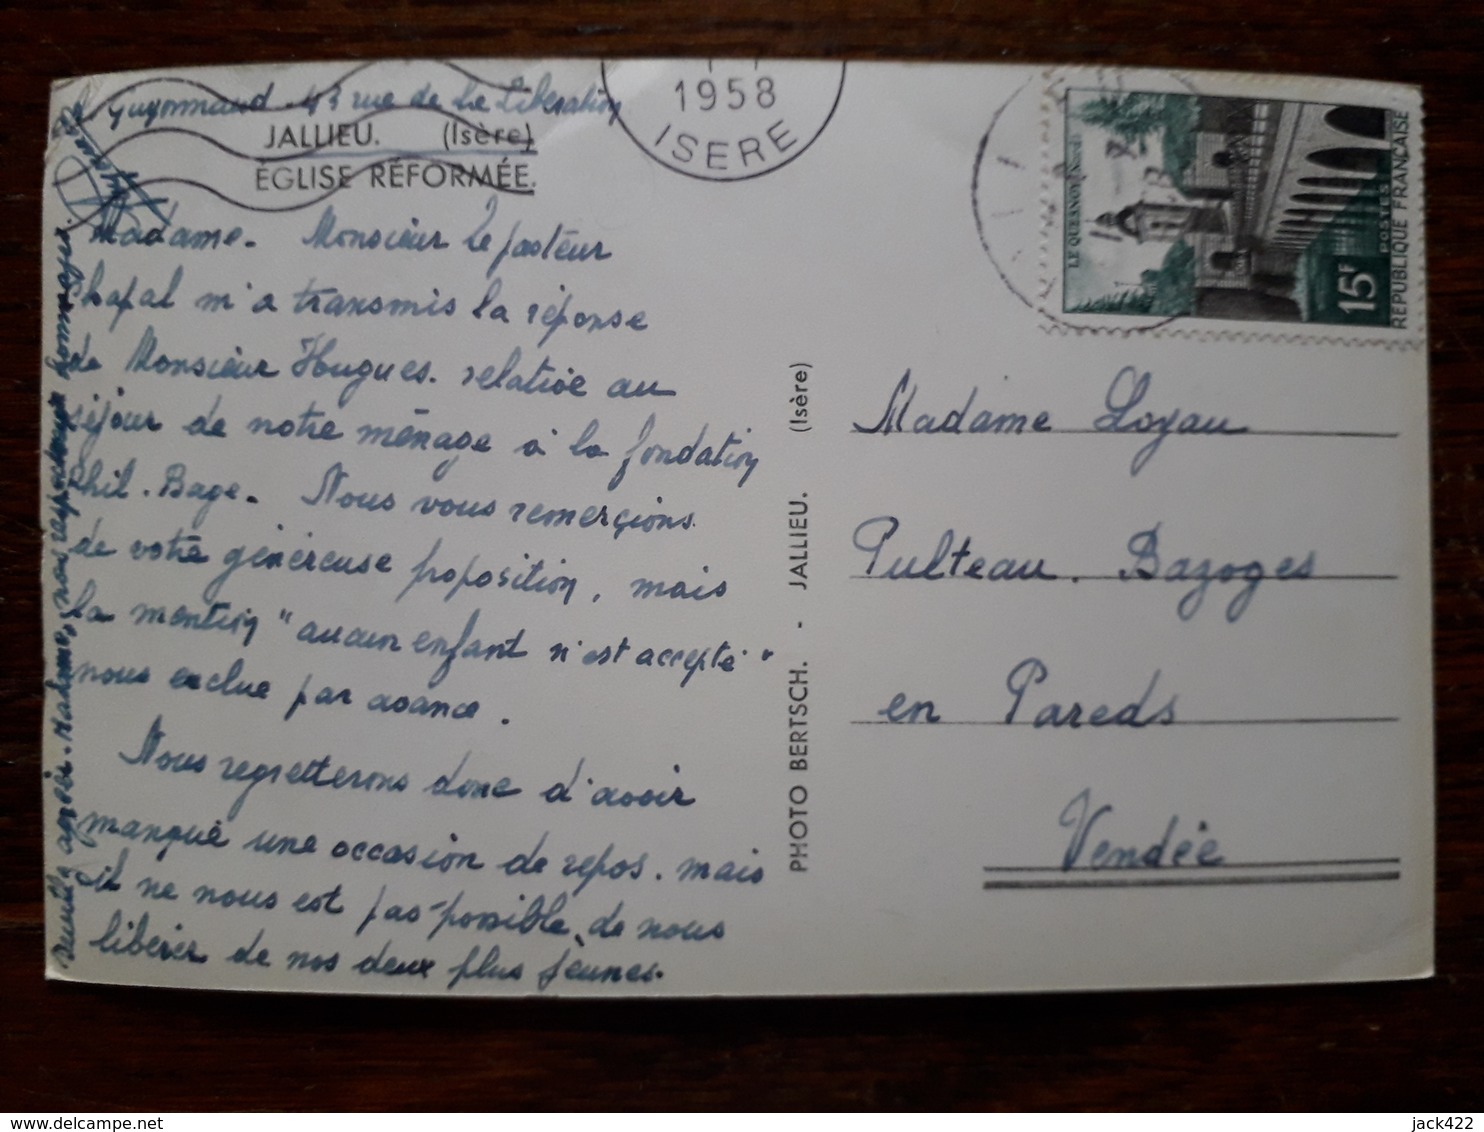 Guyonnaud 43 rue de la Libération
JALLIEU. (Isère)
ÉGLISE RÉFORMÉE.
1958
ISERE
Madame. Monsieur le pasteur
Chapal m'a transmis la réponse
de Monsieur Hugues. relative au
séjour de notre ménage à la fondation
Phil. Bage. Nous vous remerçions
de votre généreuse proposition, mais
la mention "aucun enfant n'est accepté"
nous exclue par avance.
Nous regretterons donc d'avoir
manqué une occasion de repos. mais
il ne nous est pas possible de nous
libérer de nos deux plus jeunes.
agréer. Madame, nos respectueux hommages.
PHOTO BERTSCH. - JALLIEU. (Isère)
LE QUESNOY
15F
POSTES
REPUBLIQUE FRANÇAISE
Madame Loyau
Pulteau. Bazoges
en Pareds
Vendée
jack422